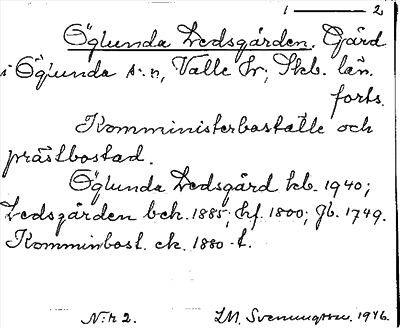 1 ——— 2
Öglunda Ledsgården. Gård
i Öglunda s:n, Valle hr; Skb. län.
forts.
Komministerboställe och
prästbostad.
Öglunda Ledsgård kb. 1940;
Ledsgården bek. 1885; hf. 1800; Jb. 1749.
Komminbost. ek. 1880-t.
N:r 2. LM. Svenungsson. 1946.